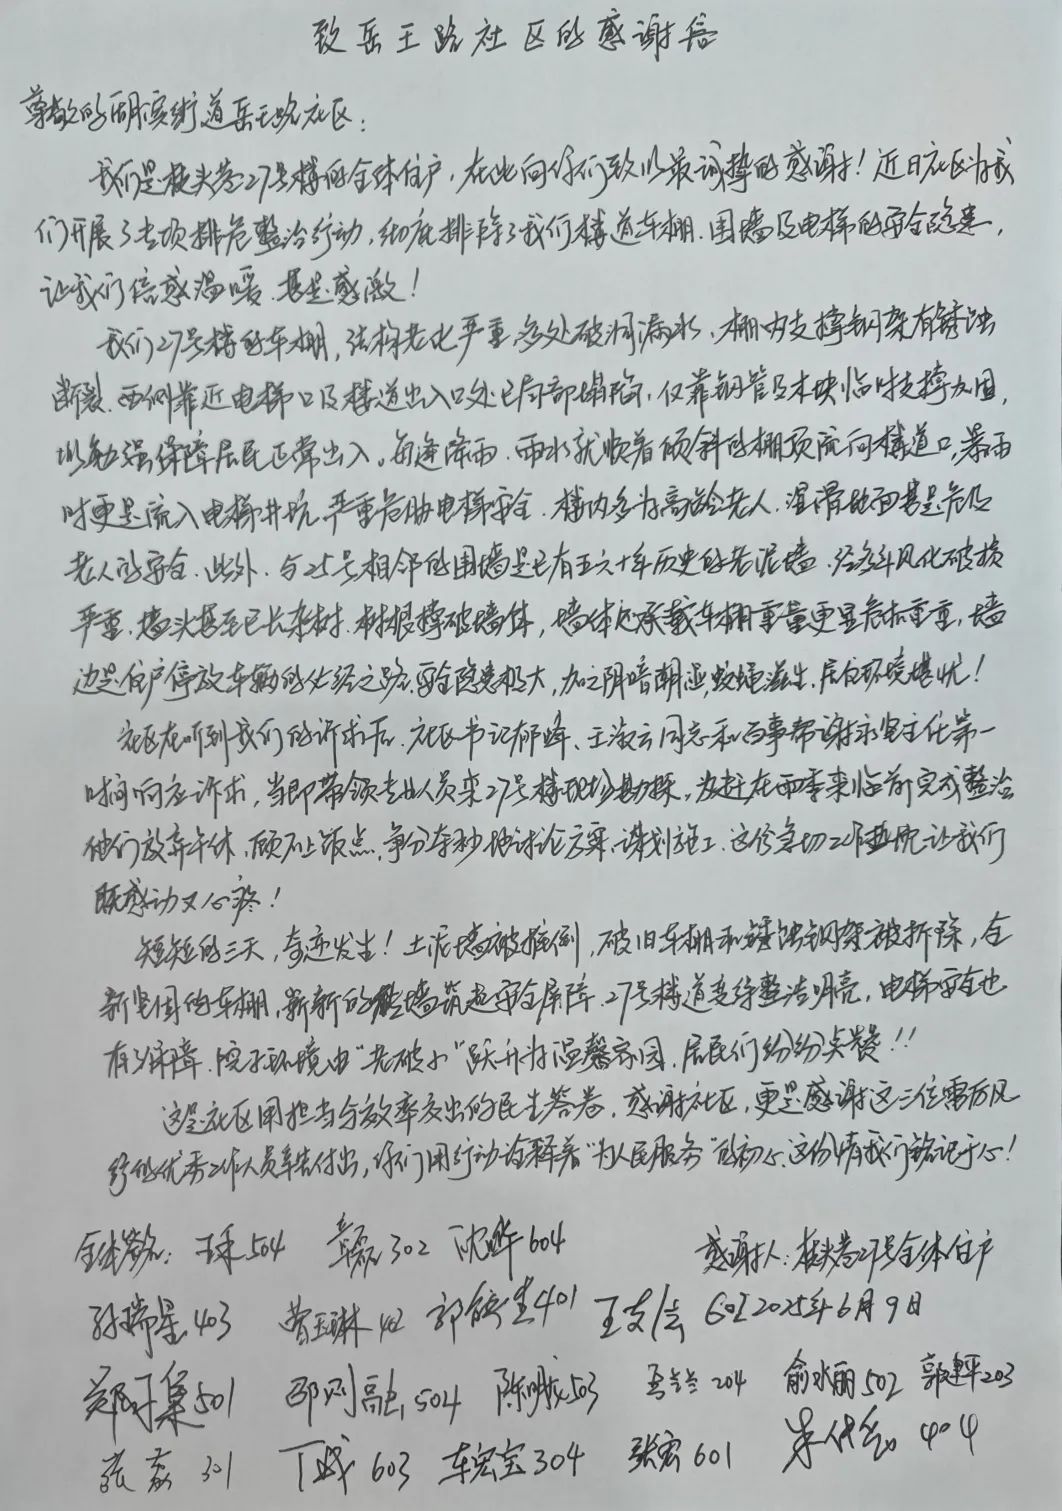 致岳王路社区的感谢信
尊敬的湖滨街道岳王路社区：
我们是板头巷27号楼的全体住户，在此向你们致以最诚挚的感谢！近日社区为我
们开展了专项排危整治行动，彻底排除了我们楼道车棚、围墙及电梯的安全隐患，
让我们倍感温暖、甚是感激！
我们27号楼的车棚，结构老化严重，多处破洞漏水，棚内支撑钢架有锈蚀
断裂，西侧靠近电梯口及楼道出入口处已局部塌陷，仅靠钢管及木块临时支撑加固，
以勉强保障居民正常出入。每逢降雨，雨水就顺着倾斜的棚顶流向楼道口，暴雨
时更是流入电梯井坑，严重危胁电梯安全，楼内多为高龄老人，湿滑地面甚是危及
老人的安全。此外，与25号相邻的围墙是已有五六十年历史的老泥墙，经多年风化破损
严重，墙头甚至已长杂树，树根撑破墙体，墙体还承载车棚重量更显危机重重，墙
边是住户停放车辆的必经之路，安全隐患极大，加之阴暗潮湿，蚊蝇滋生，居住环境堪忧！
社区在听到我们的诉求后，社区书记郁峰、王淑云同志和百事帮谢永宝主任第一
时间响应诉求，当即带领专业人员来27号楼现场勘探，为赶在雨季来临前完成整治
他们放弃午休，顾不上饭点，争分夺秒地讨论方案、谋划施工，这份急切工作热忱让我们
既感动又心疼！
短短的三天，奇迹发生！土泥墙被推倒，破旧车棚和锈蚀钢架被拆除，全
新坚固的车棚，崭新的墙筑起安全屏障，27号楼道变得整洁明亮，电梯安全也
有了保障，院子环境由“老破小”跃升为温馨家园，居民们纷纷点赞！！
这是社区用担当与效率交出的民生答卷，感谢社区，更是感谢这三位雷厉风
行的优秀工作人员辛苦付出，你们用行动诠释着“为人民服务”的初心，这份情我们铭记于心！
全体签名：王禾504 章磊302 沈晔604
感谢人：板头巷27号全体住户
孙瑞星403 曹玉琳402 郭 401 王支 602 2025年6月9日
郑子集501 邵则融504 陈明 503 204 俞水丽502 郭建平203
张磊301 丁成603 车宏宝304 张宏601 朱 404